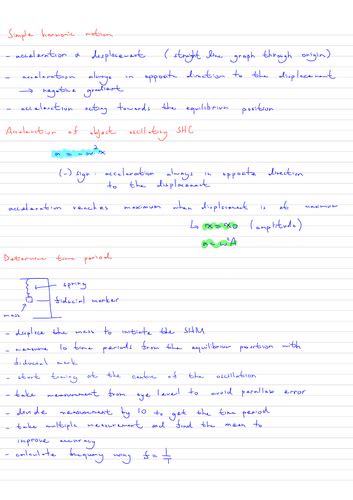 Simple harmonic motion
- acceleration ∝ displacement (straight line graph through origin)
- acceleration always in opposite direction to the displacement
→ negative gradient
- acceleration acting towards the equilibrium position
Acceleration of object oscillating SHC
a = -ω²x
(-) sign: acceleration always in opposite direction
to the displacement
acceleration reaches maximum when displacement is at maximum
↳ x = x₀ (amplitude)
a = ω²A
Determine time period
spring
fiducial marker
mass
- displace the mass to initiate the SHM
- measure 10 time periods from the equilibrium position with
fiducial mark
- start timing at the centre of the oscillation
- take measurement from eye level to avoid parallax error
- divide measurement by 10 to get the time period
- take multiple measurement and find the mean to
improve accuracy
- calculate frequency using f = 1/T